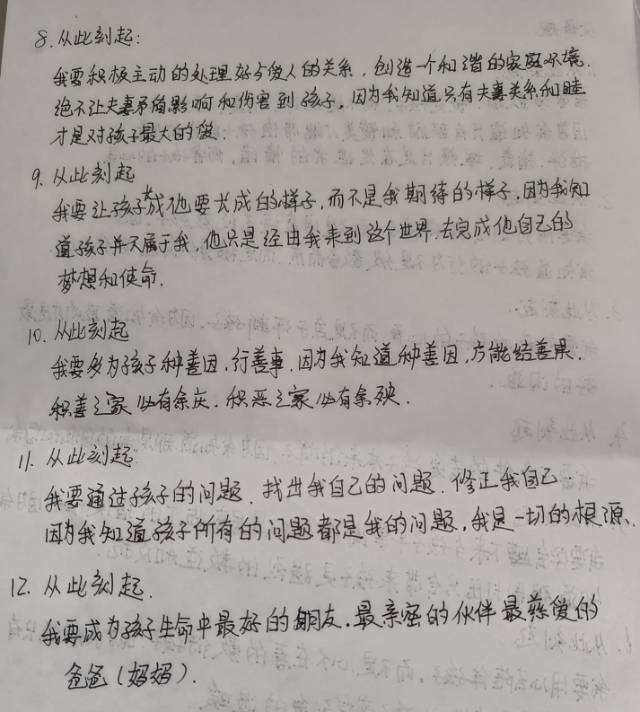 8. 从此刻起:
我要积极主动的处理好与爱人的关系，创造一个和谐的家庭环境.
绝不让夫妻矛盾影响和伤害到孩子，因为我知道只有夫妻关系和睦
才是对孩子最大的爱.
9. 从此刻起
我要让孩子长成他要长成的样子，而不是我期待的样子.因为我知
道孩子并不属于我，他只是经由我来到这个世界.去完成他自己的
梦想和使命.
10. 从此刻起
我要多为孩子种善因，行善事.因为我知道种善因，方能结善果.
积善之家必有余庆.积恶之家必有余殃.
11. 从此刻起
我要通过孩子的问题.找出我自己的问题.修正我自己.
因为我知道孩子所有的问题都是我的问题，我是一切的根源、
12. 从此刻起.
我要成为孩子生命中最好的朋友.最亲密的伙伴最慈爱的
爸爸(妈妈).